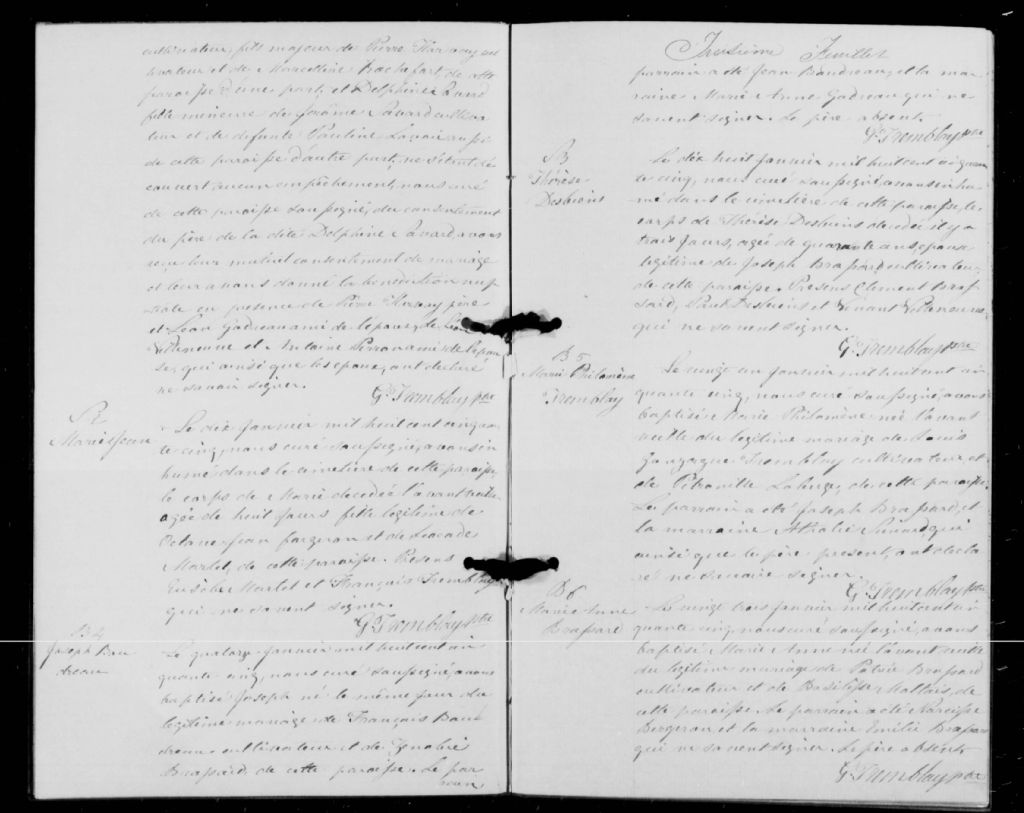 cultivateur, fils majeur de Pierre
tivateur et de Marcelline Rochefort, de cette
paroisse d'une part, et Delphine
fille mineure de Jérôme Savard cultiva
teur et de défunte Pauline aussi
de cette paroisse d'autre part, ne s'étant dé
couvert aucun empêchement, nous curé
de cette paroisse soussigné, du consentement
du père de la dite Delphine Savard, avons
reçu leur mutuel consentement de mariage
et leur avons donné la bénédiction nup
tiale en présence de Pierre père
et Léon Gadreau ami de l'époux, de
Villeneuve et Antoine ami de l'épou
se, qui ainsi que les époux, ont déclaré
ne savoir signer.
G. Tremblay ptre
S
Marie Jean
Le dix Janvier mil huit cent cinquan
te cinq, nous curé soussigné, avons in
humé dans le cimetière de cette paroisse,
le corps de Marie décédée l'avant veille
agée de huit jours fille légitime de
Octave Jean forgeron et de Léocade
Martel, de cette paroisse. Présens
Eusèbe Martel et François Tremblay
qui ne savent signer.
G. Tremblay ptre
B 4
Joseph Bau
dreau
Le quatorze Janvier mil huit cent cin
quante cinq, nous curé soussigné, avons
baptisé Joseph né le même jour du
légitime mariage de François Bau
dreau cultivateur et de Zénobie
Brassard, de cette paroisse. Le par
rain,
Troisième Feuillet
parrain a été Jean Baudreau, et la mar
raine Marie Anne Gadreau qui ne
savent signer. Le père absent.
G. Tremblay ptre
S
Thérèse
Desbiens
Le dix huit Janvier mil huit cent cinquan
te cinq, nous curé soussigné, avons inhu
mé dans le cimetière de cette paroisse, le
corps de Thérèse Desbiens décédée il y a
trois jours, agée de quarante ans épouse
légitime de Joseph Brassard cultivateur
de cette paroisse. Présens Clément Bras
sard, Paul Desbiens et Vénant Villeneuve
qui ne savent signer.
G. Tremblay ptre
B 5
Marie Philomène
Tremblay
Le vingt un Janvier mil huit cent cin
quante cinq, nous curé soussigné, avons
baptisé Marie Philomène née l'avant
veille du légitime mariage de Louis
Tremblay cultivateur, et
de Pétronille Laberge, de cette paroisse.
Le parrain a été Joseph Brassard, et
la marraine Athalie Simard qui
ainsi que le père présent, ont décla
ré ne savoir signer.
G. Tremblay ptre
B 6
Marie Anne
Brassard
Le vingt trois Janvier mil huit cent cin
quante cinq, nous curé soussigné, avons
baptisé Marie Anne née l'avant veille
du légitime mariage de Patrice Brassard
cultivateur et de Basilisse Maltais, de
cette paroisse. Le parrain a été Narcisse
Bergeron et la marraine Emélie Brassard
qui ne savent signer. Le père absent.
G. Tremblay ptre